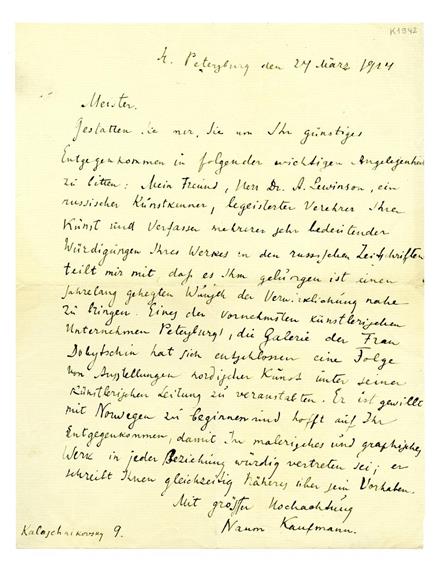 K1942
St. Petersburg den 27 März 1914
Meister.
Gestatten Sie mir, Sie um Ihr günstiges
Entgegenkommen in folgender wichtigen Angelegenheit
zu bitten: Mein Freund, Herr Dr. A. Lewinson, ein
russischer Kunstkenner, begeisterter Verehrer Ihrer
Kunst und Verfasser mehrerer sehr bedeutender
Würdigungen Ihres Werkes in den russischen Zeitschriften
teilt mir mit, daß es Ihm gelungen ist einen
Jahrelang gehegten Wunsch der Verwirklichung nahe
zu bringen. Eines der vornehmsten künstlerischen
Unternehmen Petersburgs, die Galerie der Frau
Dobytschin hat sich entschlossen eine Folge
von Ausstellungen nordischer Kunst unter seiner
künstlerischen Leitung zu veranstalten. Er ist gewillt
mit Norwegen zu beginnen und hofft auf Ihr
Entgegenkommen, damit Ihr malerisches und graphisches
Werk in jeder Beziehung würdig vertreten sei; er
schreibt Ihnen gleichzeitig Näheres über sein Vorhaben.
Mit größter Hochachtung
Naum Kaufmann.
Kaloschnikovsky 9.